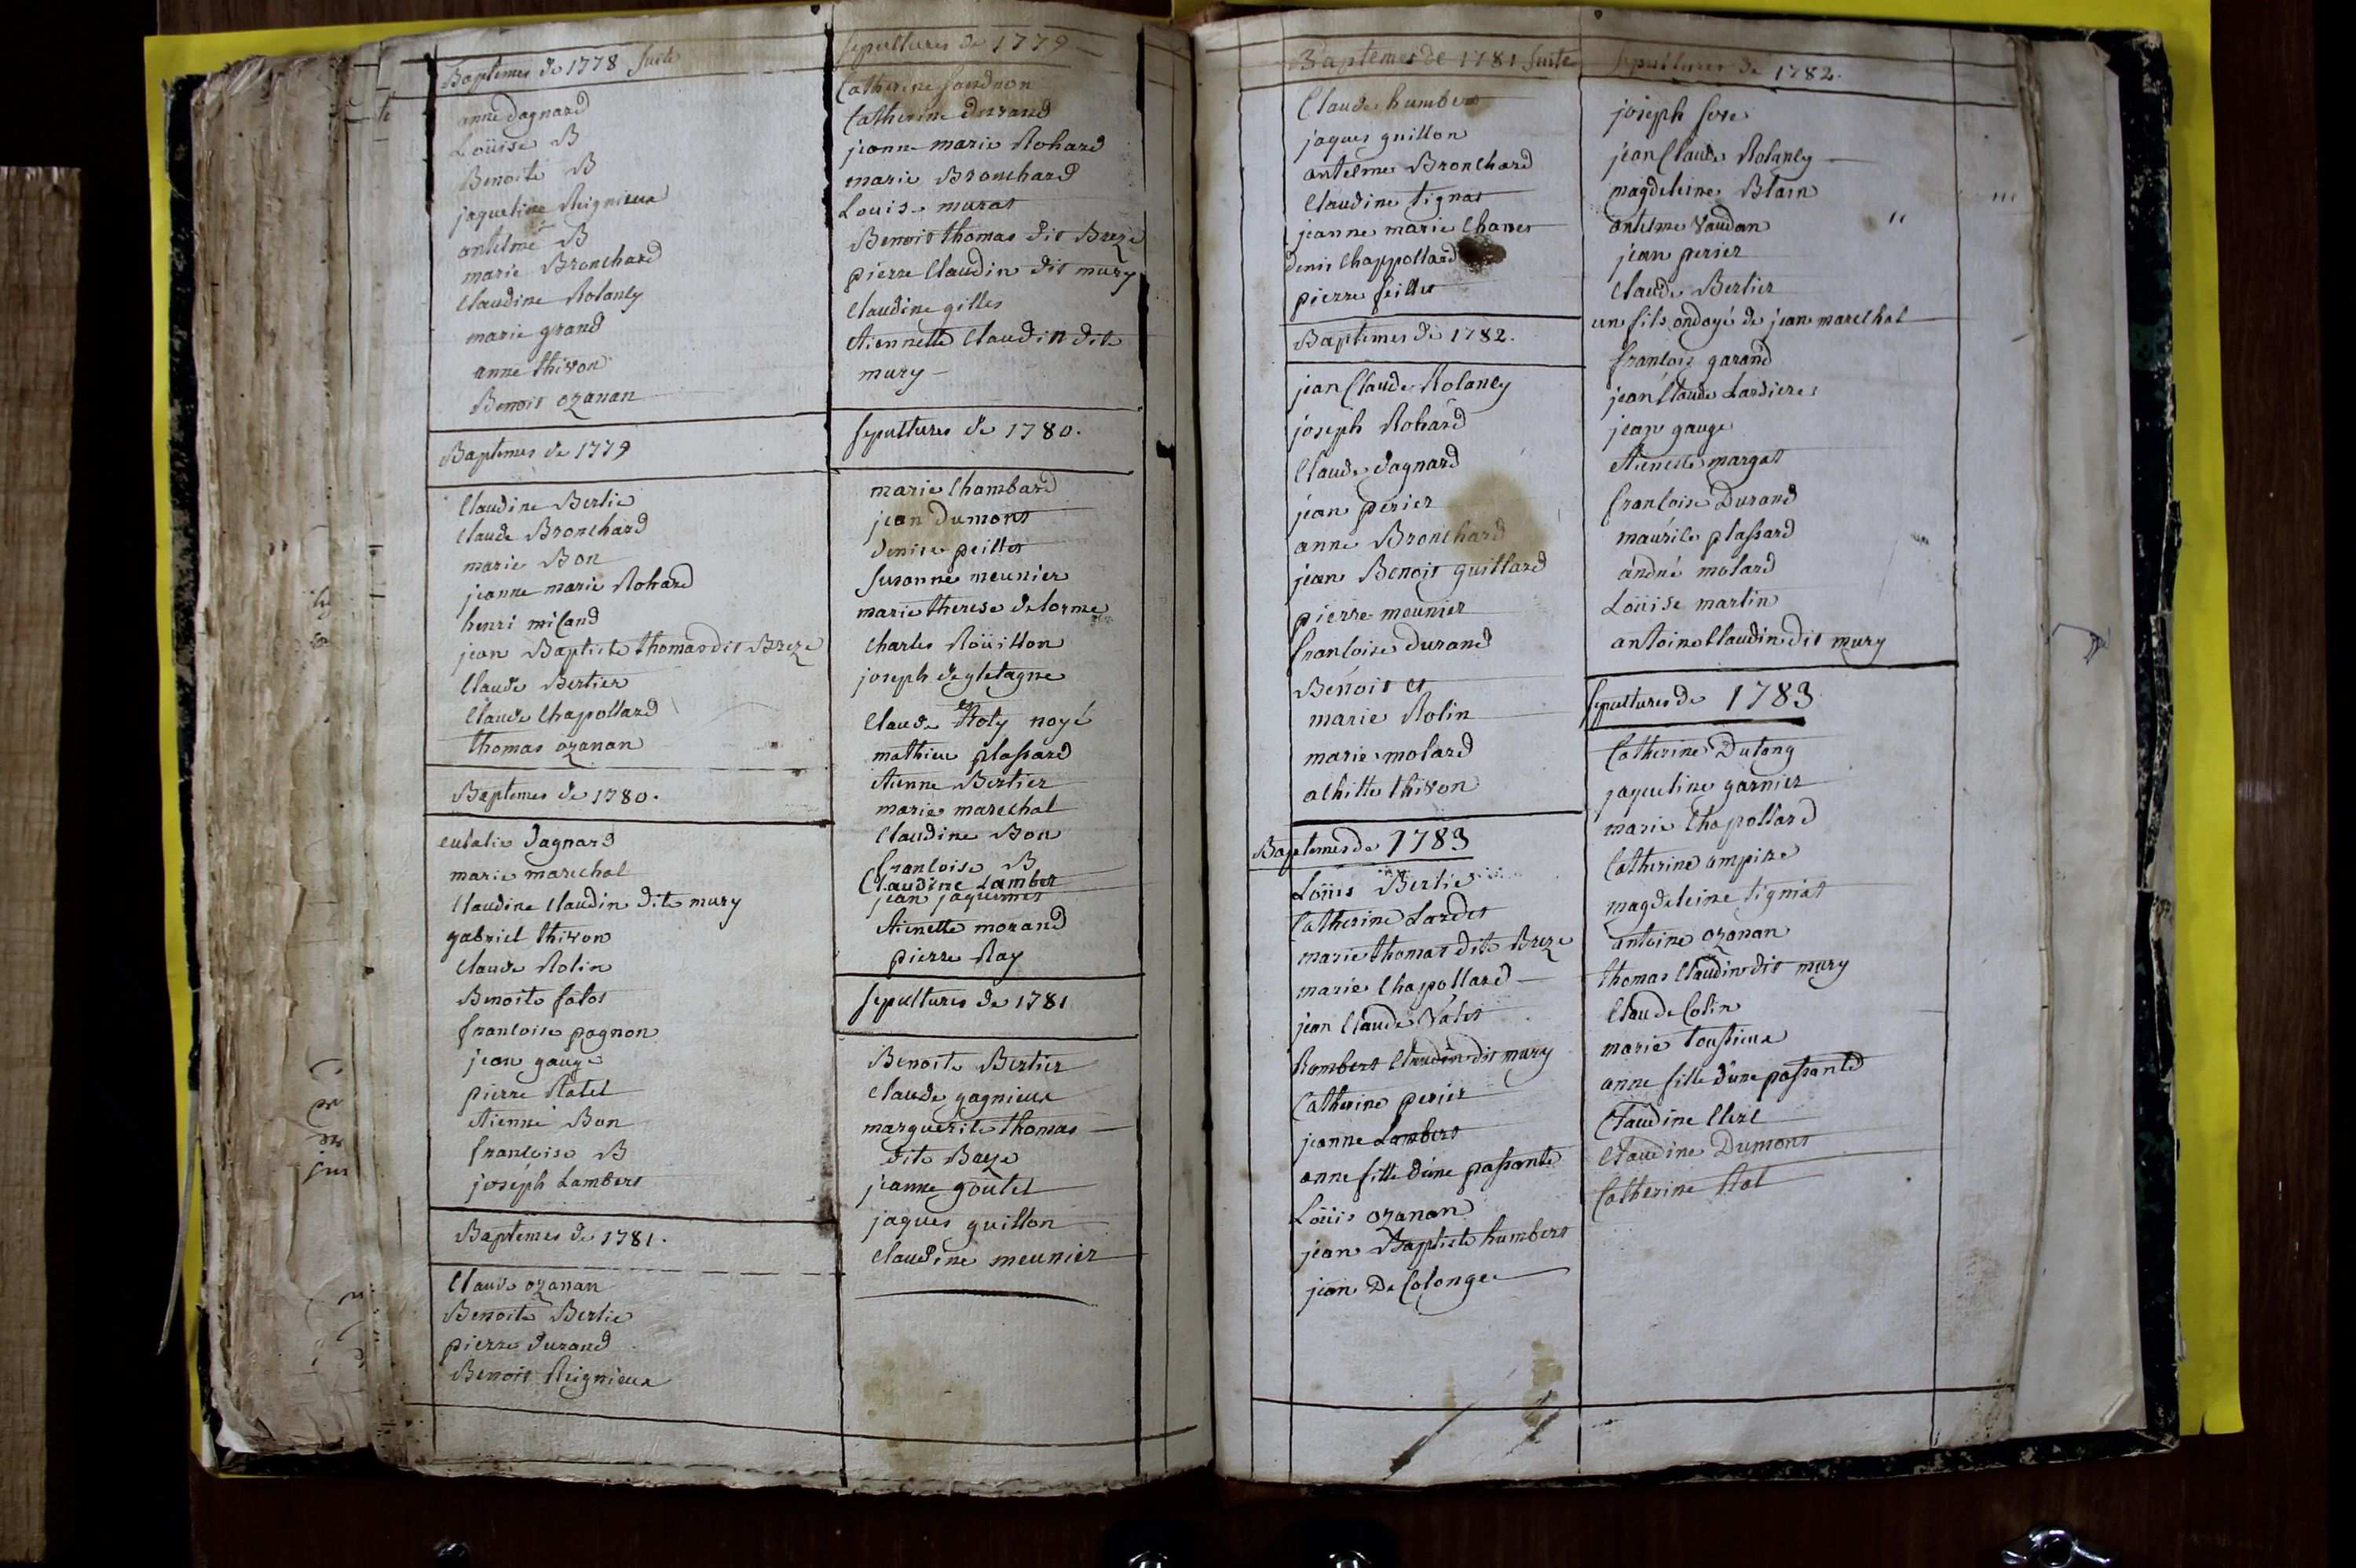 Baptemes de 1778 Suite
anne dagnard
Loüise B
Benoite B
jaqueline Reignieux
antelme B
marie Bronchard
Claudine Rolancy
marie grand
anne thivon
Benoit ozanan
Baptemes de 1779
Claudine Berlie
Claude Bronchard
marie Bon
jeanne marie Rohard
henri miland
jean Baptiste thomas dit Breze
Claude Bertier
Claude Chapollard
thomas ozanan
Baptemes de 1780.
eulalie dagnard
marie marechal
Claudine Claudin dite mury
gabriel thivon
Claude Rolin
Benoite
francoise pagnon
jean gauge
pierre Ratel
etienne Bon
francoise B
joseph Lambert
Baptemes de 1781.
Claude ozanan
Benoite Berlie
pierre durand
Benoit Reignieux
Sepultures de 1779
Catherine
Catherine durand
jeanne marie Rohard
marie Bronchard
Louise murat
Benoit thomas dit Breze
pierre Claudin dit mury
Claudine gilles
etiennette Claudin dite
mury
Sepultures de 1780.
marie Chambard
jean Dumont
denise peillet
Susanne meunier
marie therese delorme
Charles Roüillon
joseph degletagne
Claude Roty noyé
mathieu plassard
etienne Bertier
marie marechal
Claudine Bon
francoise B
Claudine Lambet
jean jaquemet
etienette morand
pierre Ray
Sepultures de 1781
Benoite Bertier
Claude gagnieux
marguerite thomas
dite Baze
jeanne goutel
jaques guillon
Claudine meunier
Baptemes de 1781 Suite
Claude humbert
jaques guillon
antelme Bronchard
Claudine tignat
jeanne marie Chanet
denis Chappollard
pierre feillet
Baptemes de 1782.
jean Claude Rolancy
joseph Rohard
Claude dagnard
jean perier
anne Bronchard
jean Benoit guillard
pierre meunier
francoise durand
Benoit et
marie Rolin
marie molard
achille thivon
Baptemes de 1783
Loüis Berlie
Catherine Lardet
marie thomas dite Breze
marie Chapollard
jean Claude Valet
Rambert Claudin dit mury
Catherine perier
jeanne Lambert
anne fille d'une passante
Loüis ozanan
jean Baptiste humbert
jean De Colonge
Sepultures de 1782.
joseph
jean Claude Rolancy
magdeleine Blain
antelme Vaudan "
jean perier
Claude Bertier
un fils ondoyé de jean marechal
francois garand
jean Claude Lardiere
jean gauge
etienette margat
francoise Durand
maurile plassard
andré molard
Loüise martin
antoine Claudin dit mury
Sepultures de 1783
Catherine Dutang
jaqueline garnier
marie Chapollard
Catherine ampire
magdeleine tigniat
antoine ozanan
thomas Claudin dit mury
Claude Colin
marie
anne fille d'une passante
Claudine Clerc
Claudine Dumont
Catherine Rat